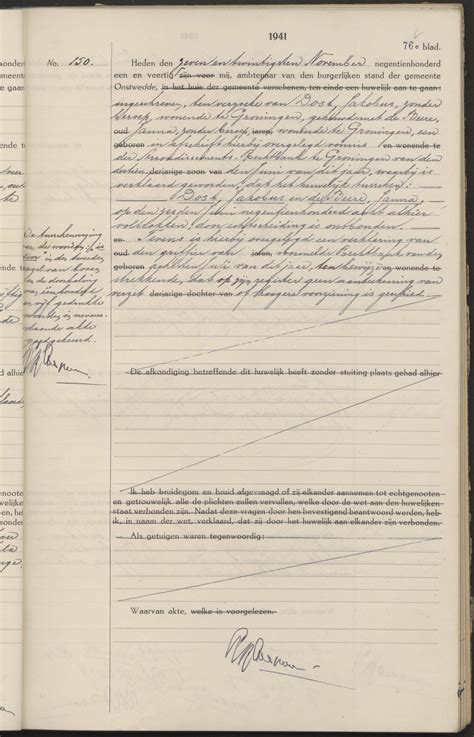 1941
76e blad.
No. 150.
Heden den zeven en twintigsten November negentienhonderd
een en veertig zijn voor mij, ambtenaar van den burgerlijken stand der gemeente
Onstwedde, in het huis der gemeente verschenen, ten einde een huwelijk aan te gaan:
ingeschreven, ten verzoeke van Dost, Jakobus, zonder
beroep, wonende te Groningen, gehuwd met de Beere,
oud Janna, zonder beroep, jaren, wonende te Groningen, een
geboren in afschrift hierbij overgelegd vonnis en wonende te
der Arrondissements-Rechtbank te Groningen van den
dertien derjarige zoon van den Juni van dit jaar, waarbij is
verklaard geworden, dat het huwelijk tusschen:
Dost, Jakobus en de Beere, Janna,
op den zesden Juni negentienhonderd acht alhier
voltrokken, door echtscheiding is ontbonden.
Tevens is hierbij overgelegd een verklaring van
oud den griffier van jaren, voormelde Rechtbank van den
geboren achtsten Juli van dit jaar, ten bewijze en wonende te
strekkende, dat op zijn register geen aanteekening van
verzet derjarige dochter van of hoogere voorziening is gesteld.
De tusschenvoeging
van de woorden
in den tweeden
regel van boven
en de doorhaling
van
vijf gedrukte
woorden, in neven-
staande akte
goedgekeurd.
De afkondiging betreffende dit huwelijk heeft zonder stuiting plaats gehad alhier
Ik heb bruidegom en bruid afgevraagd of zij elkander aannemen tot echtgenooten
en getrouwelijk alle de plichten zullen vervullen, welke door de wet aan den huwelijken
staat verbonden zijn. Nadat deze vragen door hen bevestigend beantwoord werden, heb
ik, in naam der wet, verklaard, dat zij door het huwelijk aan elkander zijn verbonden.
Als getuigen waren tegenwoordig:
Waarvan akte, welke is voorgelezen.